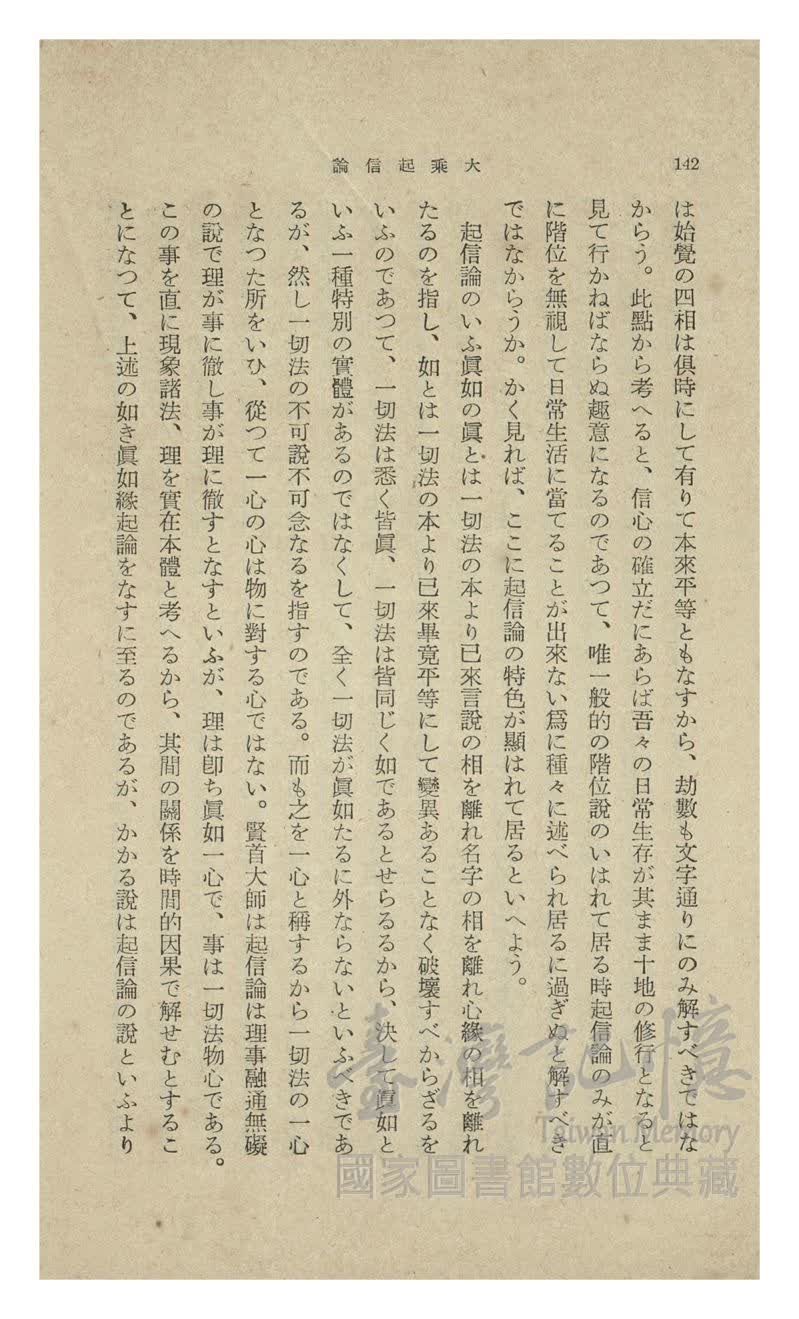 142
大乘起信論
は始覺の四相は俱時にして有りて本來平等ともなすから、劫數も文字通りにのみ解すべきではな
からう。此點から考へると、信心の確立だにあらば吾々の日常生存が其まま十地の修行となると
見て行かねばならぬ趣意になるのであつて、唯一般的の階位說のいはれて居る時起信論のみが直
に階位を無視して日常生活に當てることが出來ない爲に種々に述べられ居るに過ぎぬと解すべき
ではなからうか。かく見れば、ここに起信論の特色が顯はれて居るといへよう。
起信論のいふ眞如の眞とは一切法の本より已來言說の相を離れ名字の相を離れ心緣の相を離れ
たるのを指し、如とは一切法の本より已來畢竟平等にして變異あることなく破壞すべからざるを
いふのであつて、一切法は悉く皆眞、一切法は皆同じく如であるとせらるるから、決して眞如と
いふ一種特別の實體があるのではなくして、全く一切法が眞如たるに外ならないといふべきであ
るが、然し一切法の不可說不可念なるを指すのである。而も之を一心と稱するから一切法の一心
となつた所をいひ、從つて一心の心は物に對する心ではない。賢首大師は起信論は理事融通無礙
の說で理が事に徹し事が理に徹すとなすといふが、理は卽ち眞如一心で、事は一切法物心である。
この事を直に現象諸法、理を實在本體と考へるから、其間の關係を時間的因果で解せむとするこ
とになつて、上述の如き眞如緣起論をなすに至るのであるが、かかる說は起信論の說といふより
臺灣記憶
Taiwan Memory
國家圖書館數位典藏